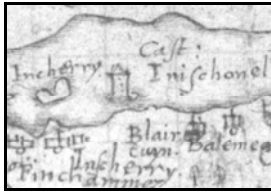 Cast:
Incherry Inischonel
Blair Balemea
cum.
Inscherry
Finch ammer